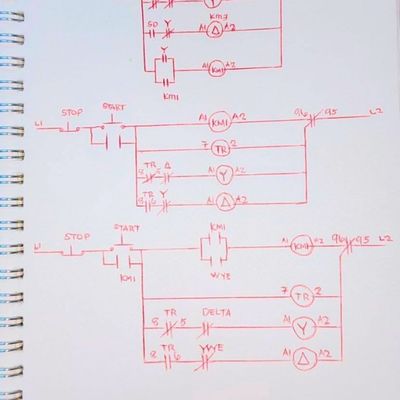 Y
KM3
SD Y A1 Δ A2
Y
A1 KM1 A2
KM1
STOP START
A1 KM1 A2 96 95 L2
L1
7 TR 2
TR Δ
8 5 A1 Y A2
TR Y
8 6 A1 Δ A2
START KM1
STOP A1 KM1 A2 96 95 L2
L1
KM1 WYE
7 TR 2
TR DELTA
8 5 A1 Y A2
TR WYE
8 6 A1 Δ A2